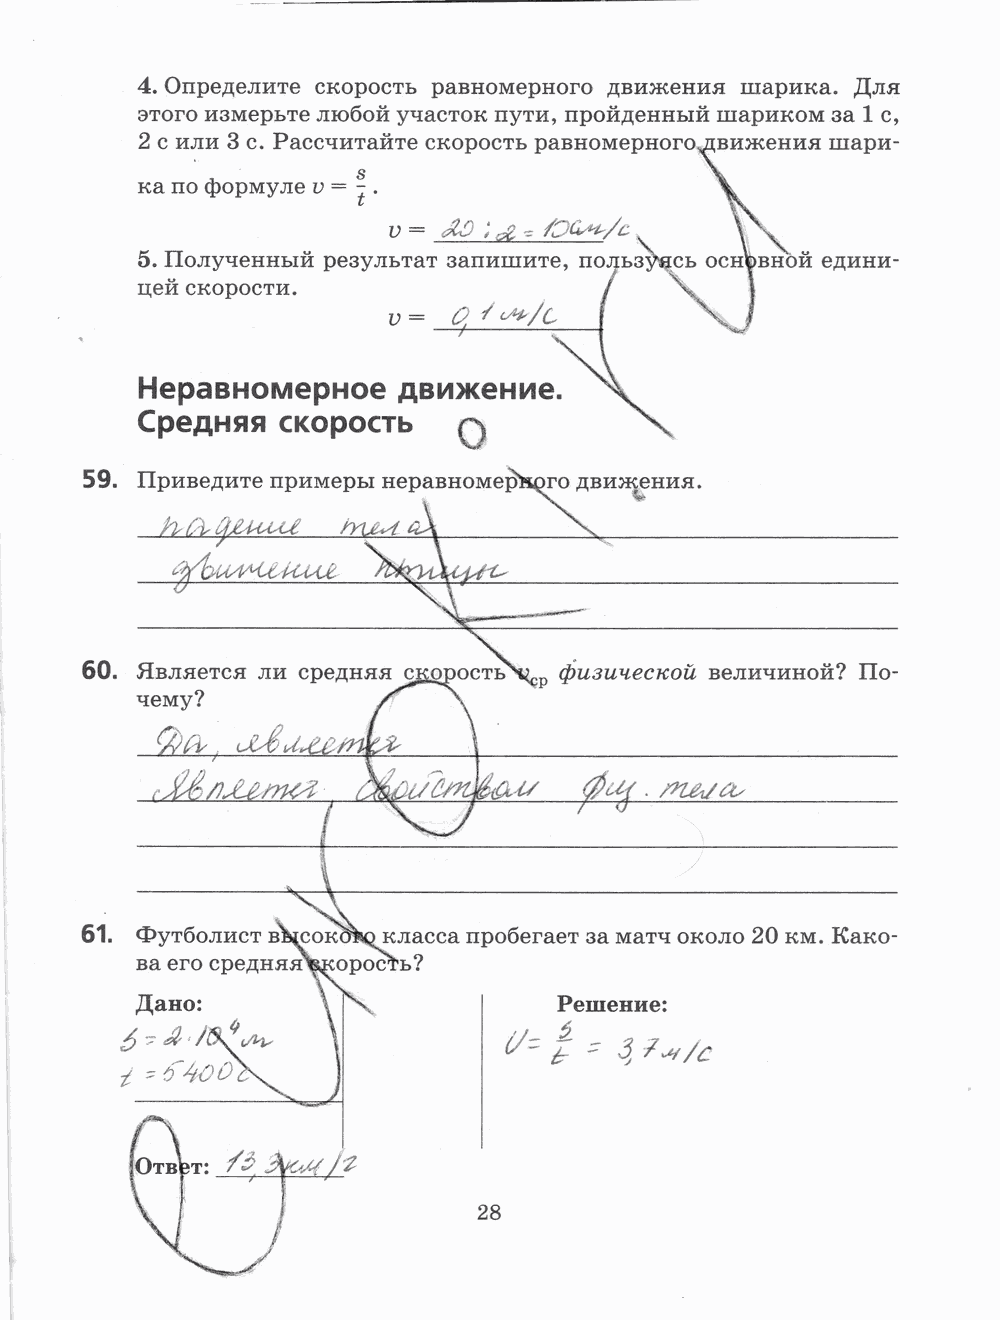 4. Определите скорость равномерного движения шарика. Для
этого измерьте любой участок пути, пройденный шариком за 1 с,
2 с или 3 с. Рассчитайте скорость равномерного движения шари-
ка по формуле v = s/t.
v = 20 : 2 = 10 см/с
5. Полученный результат запишите, пользуясь основной едини-
цей скорости.
v = 0,1 м/с
Неравномерное движение.
Средняя скорость
59. Приведите примеры неравномерного движения.
падение тела
движение птицы
60. Является ли средняя скорость vср физической величиной? По-
чему?
Да, является
Является свойством физ. тела
61. Футболист высокого класса пробегает за матч около 20 км. Како-
ва его средняя скорость?
Дано:
Решение:
S = 2·10⁴ м
t = 5400 с
v = s/t = 3,7 м/с
Ответ: 13,3 км/г
28